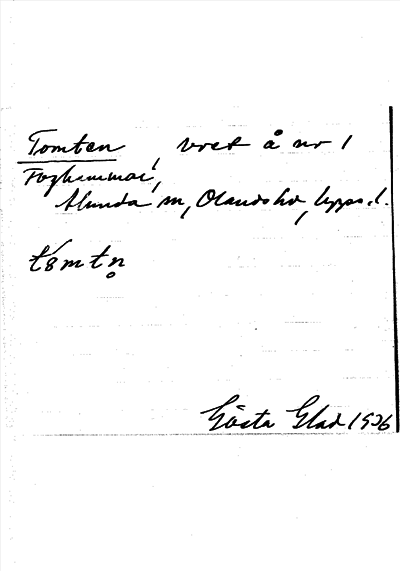 Tomten, vret å nr 1
Foghammar,
Alunda sn, Olands hd, Upps. l.
tômtn̥
Gösta Glad 1926